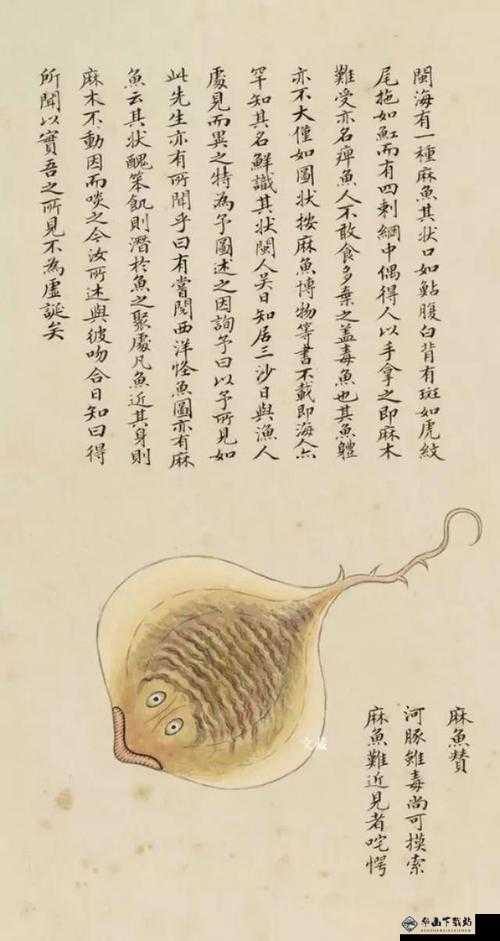 閩海有一種麻魚其狀口如鮎腹白背有斑如虎紋
尾拖如魟而有四刺網中偶得人以手拿之即麻木
難受亦名痺魚人不敢食多棄之蓋毒魚也其魚體
亦不大僅如圖狀按麻魚博物等書不載即海人亦
罕知其名鮮識其狀閩人吳日知居三沙日與漁人
處見而異之特為予圖述之因詢予曰以予所見如
此先生亦有所聞乎曰有嘗閱西洋怪魚圖亦有麻
魚云其狀醜笨飢則潛於魚之聚處凡魚近其身則
麻木不動因而啖之今汝所述與彼吻合日知曰得
所聞以實吾之所見不為虛誕矣
麻魚贊
河豚雖毒尚可摸索
麻魚難近見者咤愕
华画下载站